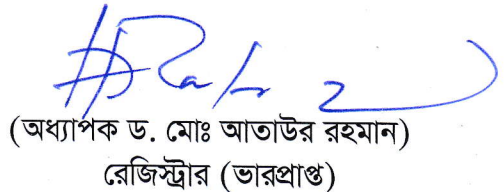 (অধ্যাপক ড. মোঃ আতাউর রহমান)
রেজিস্ট্রার (ভারপ্রাপ্ত)